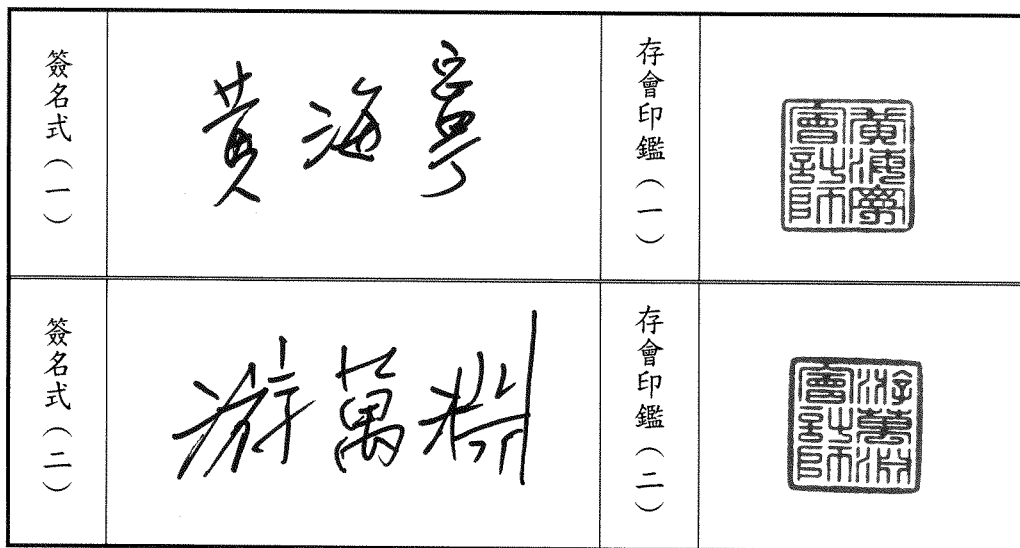 簽名式（一）
黃海寧
存會印鑑（一）
黃海寧
會計師
簽名式（二）
游萬淵
存會印鑑（二）
游萬淵
會計師